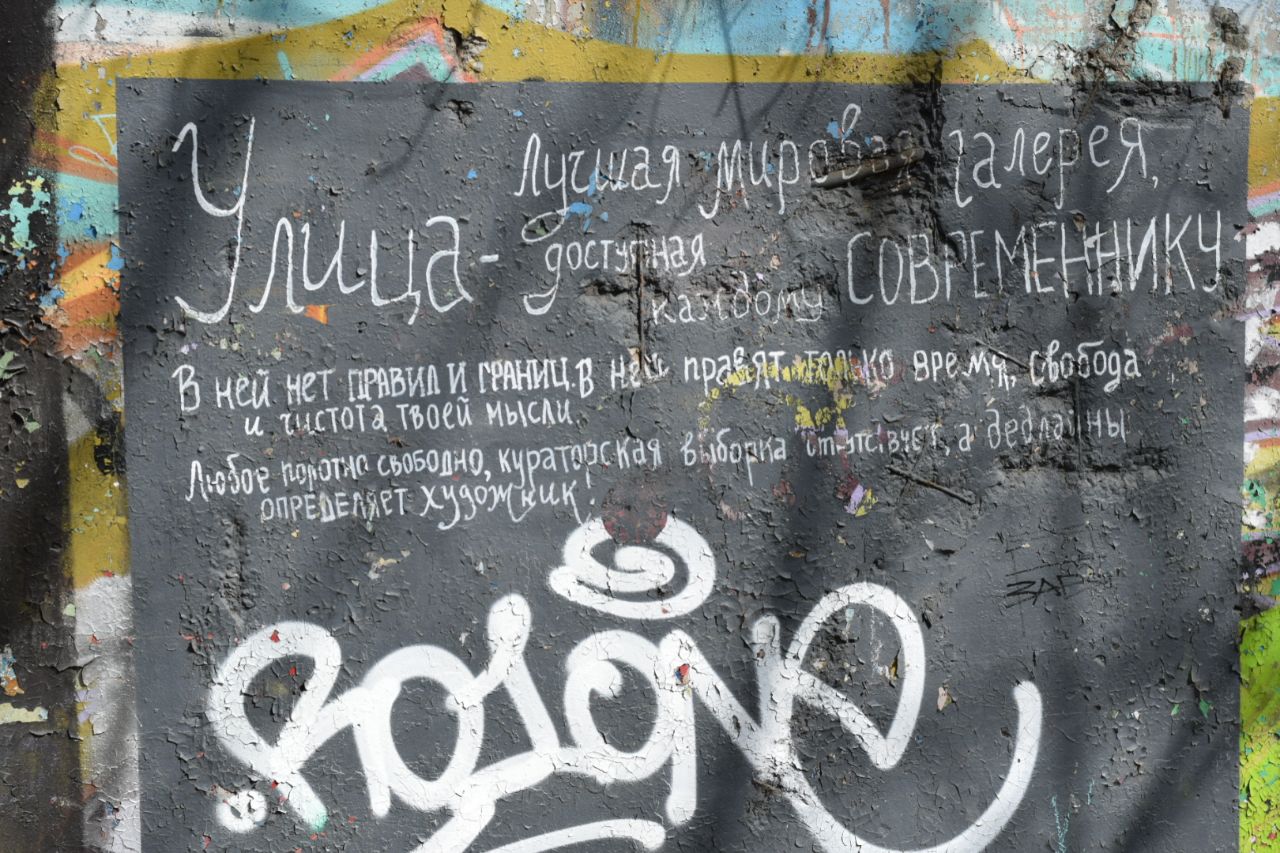 Улица -
лучшая мировая галерея,
доступная
каждому СОВРЕМЕННИКУ
В ней нет ПРАВИЛ И ГРАНИЦ. В ней правят только время, свобода
и чистота твоей мысли.
Любое полотно свободно, кураторская выборка отсутсвует, а дедлайны
ОПРЕДЕЛЯЕТ художник.